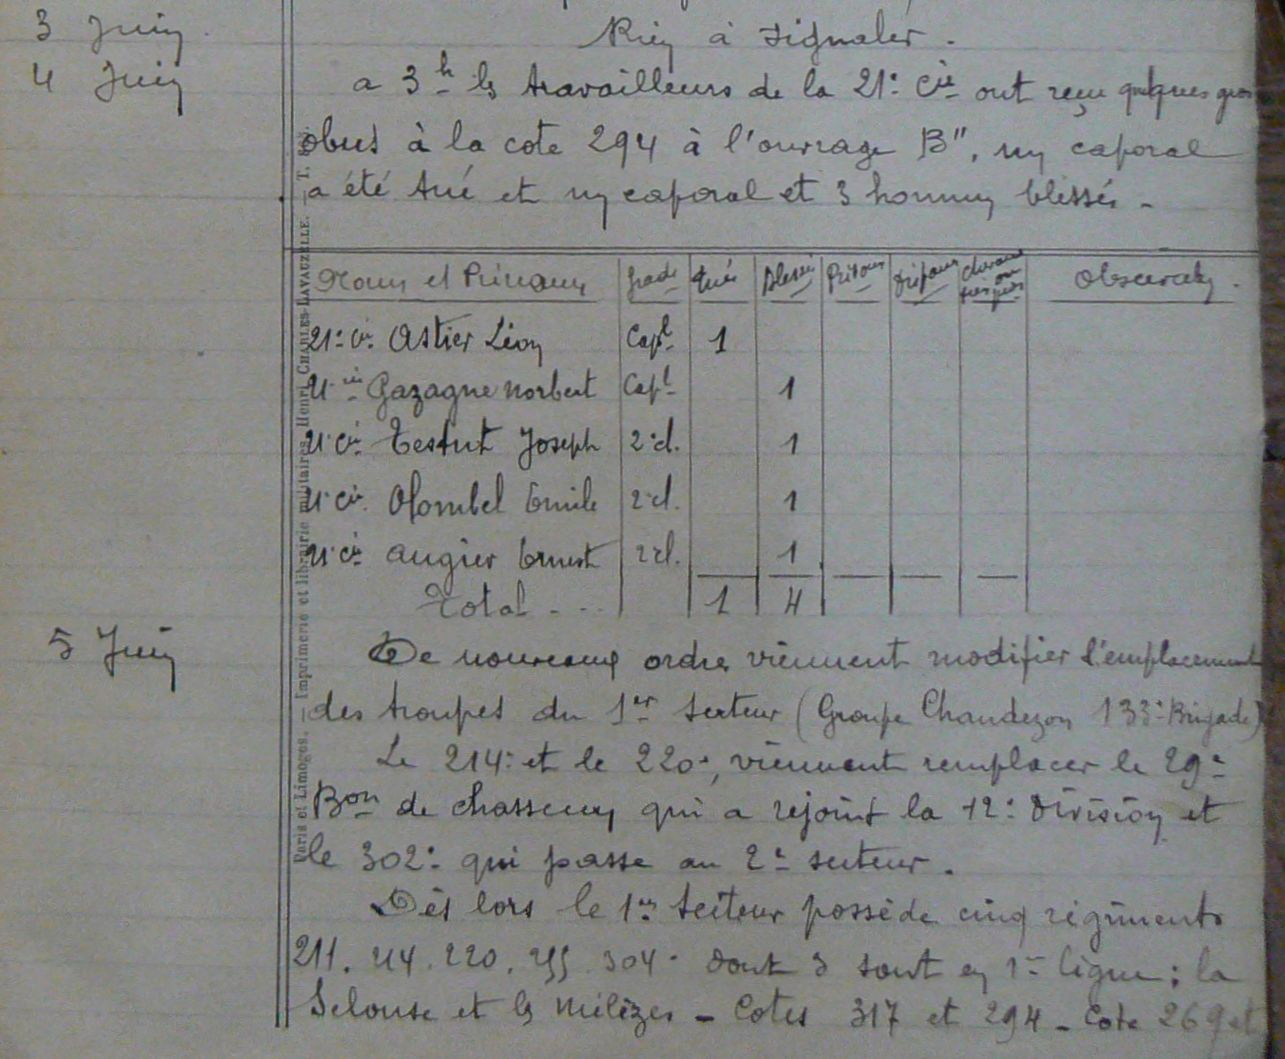 3 Juin Rien à signaler.
4 Juin a 3h les travailleurs de la 21e Cie ont reçu quelques gros
obus à la cote 294 à l'ouvrage B", un caporal
a été tué et un caporal et 3 hommes blessés -
Noms et Prénoms grade Tués Blessés Prisons Disparus Observats.
21e Cie Astier Léon Capl 1
21e Cie Gazagne Norbert Capl 1
21e Cie Testut Joseph 2e cl. 1
21e Cie Olombel Emile 2e cl. 1
21e Cie Augier Ernest 2e cl. 1
Total - .. 1 4
5 Juin De nouveaux ordres viennent modifier l'emplacement
des troupes du 1er secteur (Groupe Chandezon 133e Brigade)
Le 214e et le 220e, viennent remplacer le 29e
Bon de chasseurs qui a rejoint la 12e Division et
le 302e qui passe au 2e secteur.
Dès lors le 1er secteur possède cinq régiments
211. 214. 220. 255. 304e dont 3 sont en 1e ligne; la
Selouse et les Mélèzes - Cotes 317 et 294 - Cote 269 et
Paris et Limoges. — Imprimerie et librairie militaires Henri CHARLES-LAVAUZELLE. — T.